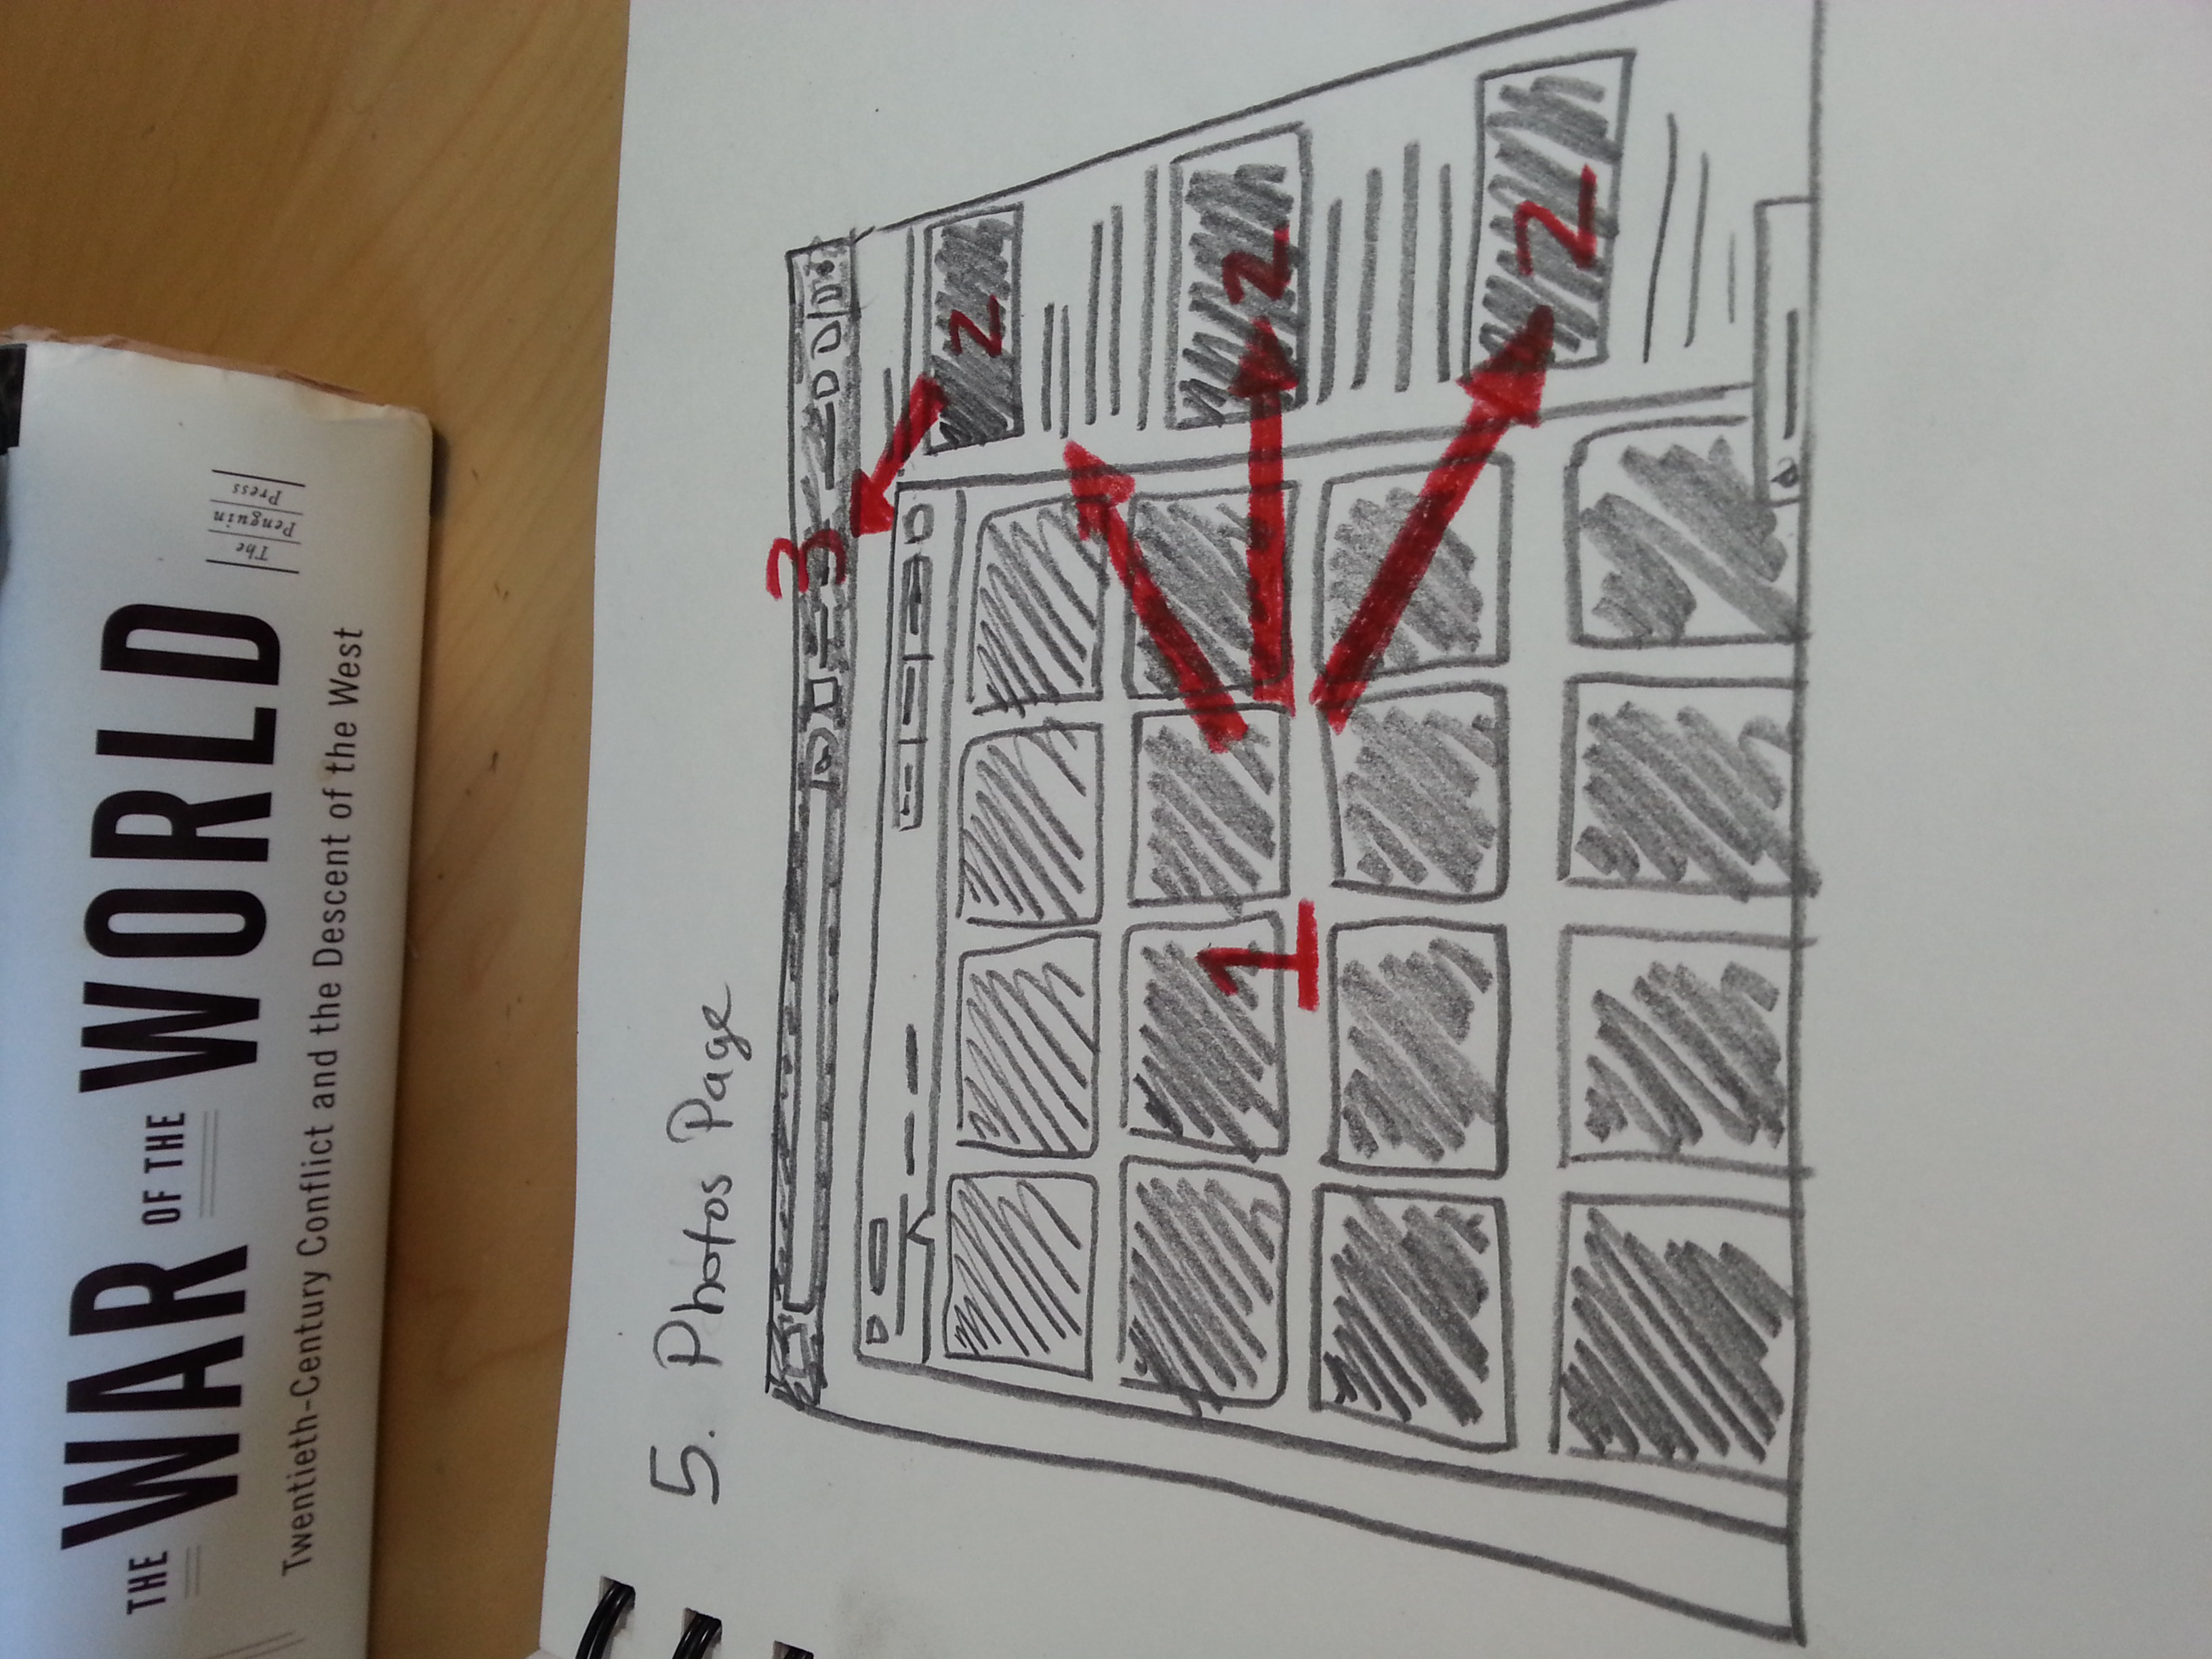 THE WAR OF THE WORLD
Twentieth-Century Conflict and the Descent of the West
The
Penguin
Press
5. Photos Page
3
2
1
2
2